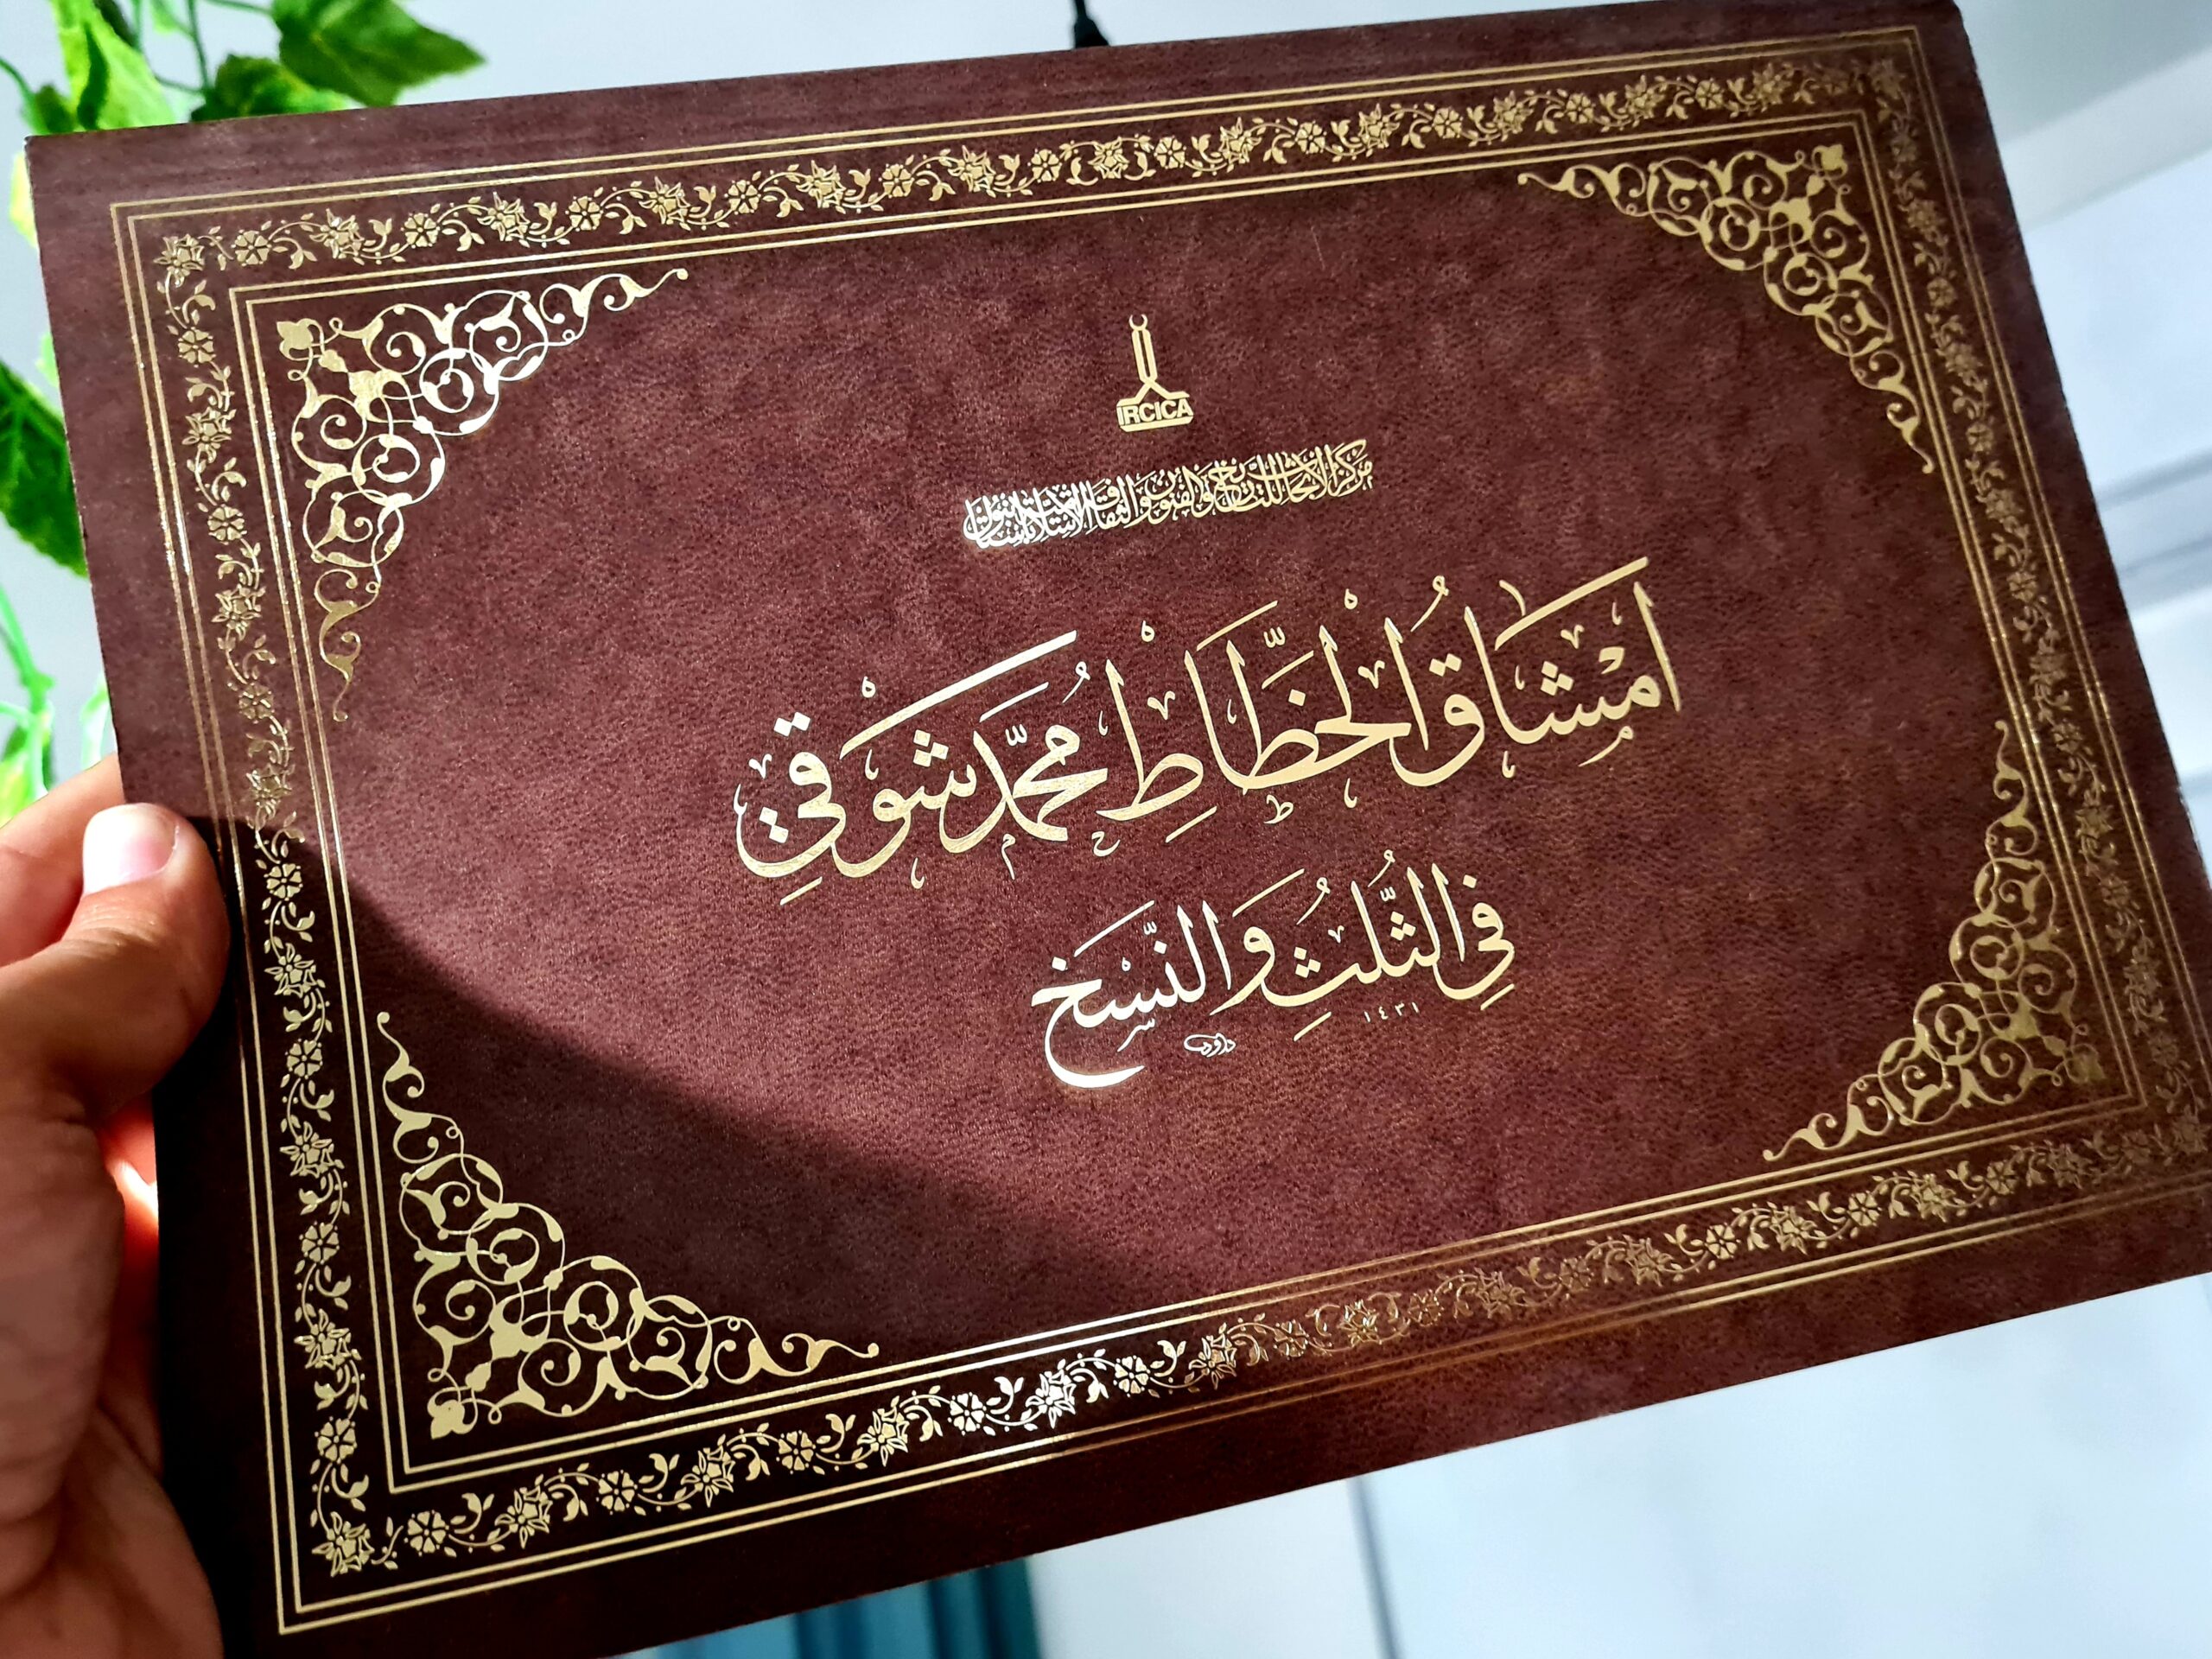 IRCICA
مركز الأبحاث للتاريخ والفنون والثقافة الإسلامية باستانبول
أَمْشَاقُ الْخَطَّاطِ مُحَمَّد شَوْقِي
فِي الثُّلُثِ وَالنَّسْخِ
١٤٣١
داود